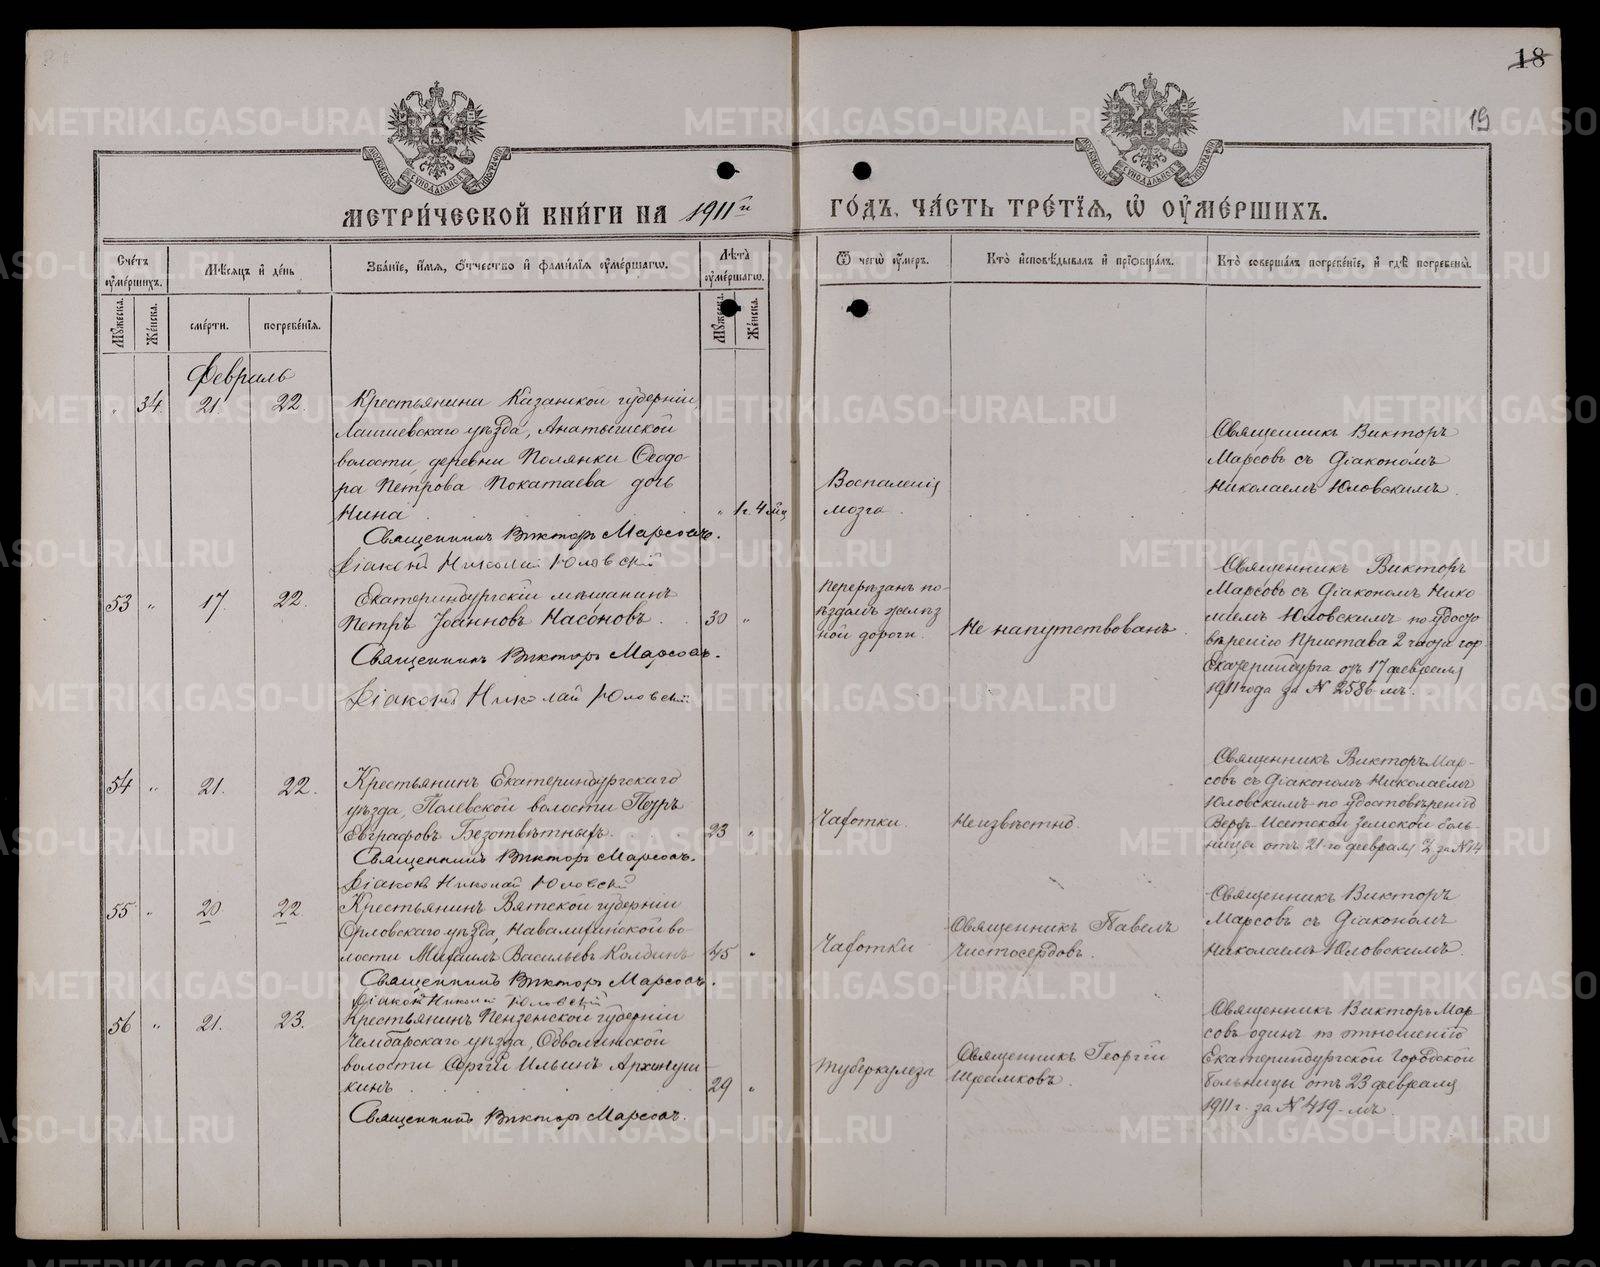 18
19
МЕТРИ́ЧЕСКОЙ КНИ́ГИ НА 1911й
ГО́ДЪ, ЧА́СТЬ ТРЕ́ТІѦ, Ѡ ОУ҆МЕ́РШИХЪ.
Сче́тъ оу҆ме́ршихъ.
Мѣ́сѧцъ и҆ де́нь
Зва́нїе, и҆́мѧ, ѻ҆́тчество и҆ фами́лїѧ оу҆ме́ршагѡ.
Лѣ́тъ оу҆ме́ршагѡ.
Ѿ чегѡ̀ оу҆́меръ.
Кто̀ и҆сповѣ́дывалъ и҆ прїѡбща́лъ.
Кто̀ соверша́лъ погребе́нїе, и҆ гдѣ̀ погребены̀.
Мꙋ́жеска.
Же́нска.
сме́рти.
погребе́нїѧ.
Мꙋ́жеска.
Же́нска.
Февраль
" 34. 21. 22.
Крестьянина Казанской губерніи,
Лаишевскаго уѣзда, Анатышской
волости, деревни Полянки Ѳеодо-
ра Петрова Покатаева дочь
Нина . " 1 г. 4 мѣс
Священникъ Викторъ Марсовъ.
Діаконъ Николай Юловскій
Воспаленія
мозга.
Священникъ Викторъ
Марсовъ съ Діакономъ
Николаемъ Юловскимъ.
53 " 17. 22.
Екатеринбургскій мѣщанинъ
Петръ Іоанновъ Насоновъ . . 30 "
Священникъ Викторъ Марсовъ.
Діаконъ Николай Юловскій
Перерѣзанъ по-
ѣздомъ желѣз
ной дороги.
Не напутствованъ.
Священникъ Викторъ
Марсовъ съ Діакономъ Нико
лаемъ Юловскимъ по удосто
вѣренію Пристава 2 части гор.
Екатеринбурга отъ 17 февраля
1911 года за № 2586-мъ.
54 " 21. 22.
Крестьянинъ Екатеринбургскаго
уѣзда, Полевской волости Петръ
Евграфовъ Безотвѣтныхъ. 23 "
Священникъ Викторъ Марсовъ.
Діаконъ Николай Юловскій
Чахотки.
Неизвѣстно.
Священникъ Викторъ Мар-
совъ съ Діакономъ Николаемъ
Юловскимъ по удостовѣренію
Верхъ-Исетской Земской боль-
ницы отъ 21-го февраля за № 14
55 " 20 22.
Крестьянинъ Вятской губерніи
Орловскаго уѣзда, Навалихинской во-
лости Михаилъ Васильевъ Колдинъ 45 "
Священникъ Викторъ Марсовъ.
Діаконъ Николай Юловскій
Чахотки
Священникъ Павелъ
Чистосердовъ.
Священникъ Викторъ
Марсовъ съ Діакономъ
Николаемъ Юловскимъ.
56 " 21. 23.
Крестьянинъ Пензенской губерніи
Чембарскаго уѣзда,
волости Сергій Ильинъ
кинъ . . 29 "
Священникъ Викторъ Марсовъ.
Туберкулеза
Священникъ Георгій
Священникъ Викторъ Мар-
совъ одинъ по отношенію
Екатеринбургской Городской
больницы отъ 23 февраля
1911 г. за № 419-мъ.
METRIKI.GASO-URAL.RU